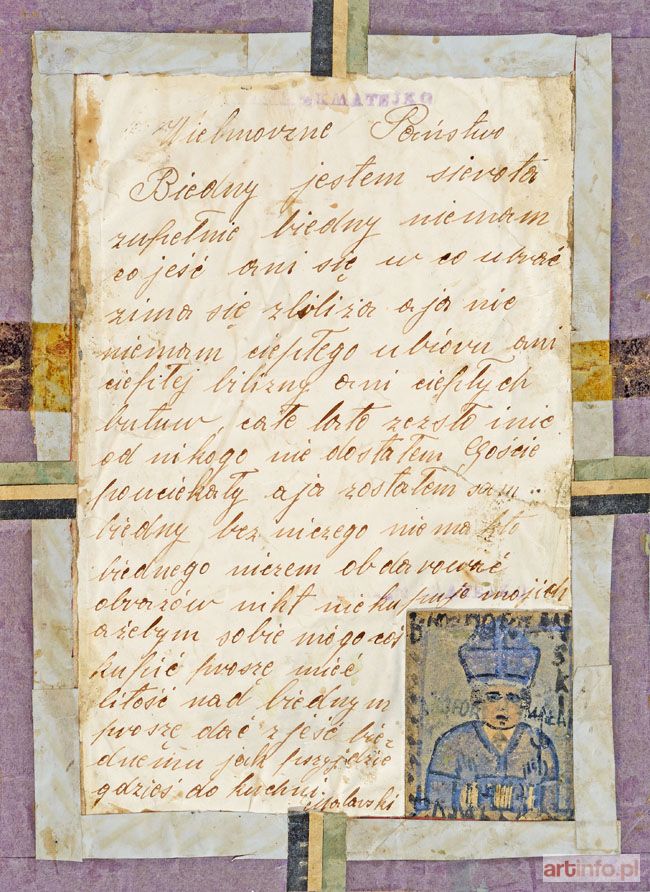 MATEJKO
Wielmorzne Państwo
Biedny jestem sierota
zupełnie biedny niemam
co jeść ani się w co ubrać
zima się zbliża a ja nie
niemam ciepłego ubioru ani
ciepłej bilizny ani ciepłych
butuw, całe lato zeszło i nic
od nikogo nie dostałem Goście
pouciekały a ja zostałem sam
biedny bez niczego niema kto
biednego niczem obdarować
obrazów nikt niekupuje mojich
ażebym sobie mógł coś
kupić proszę mieć
litość nad biednym
proszę dać zjeść bie-
dnemu jak przyjdzie
gdzieś do kuchni
Malarski
SKI
artinfo.pl